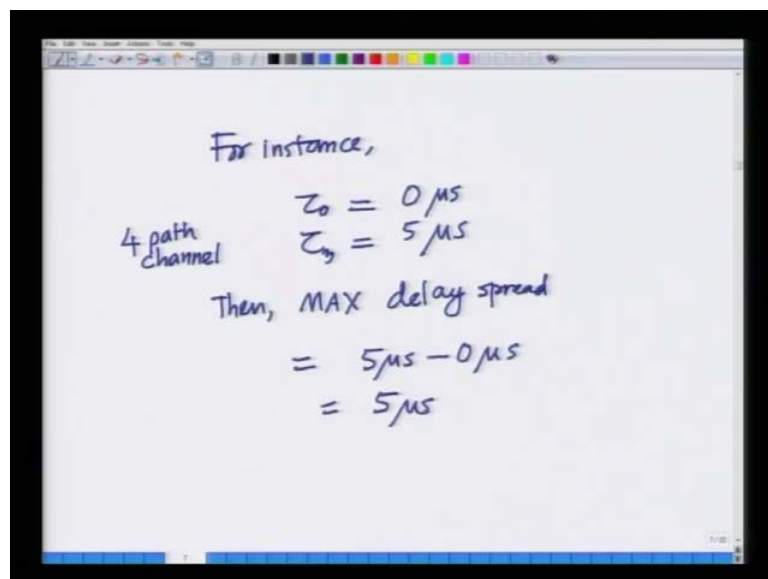 File Edit View Insert Actions Tools Help
For instance,
τ₀ = 0 μs
4 path channel
τ₃ = 5 μs
Then, MAX delay spread
= 5μs − 0 μs
= 5 μs
7